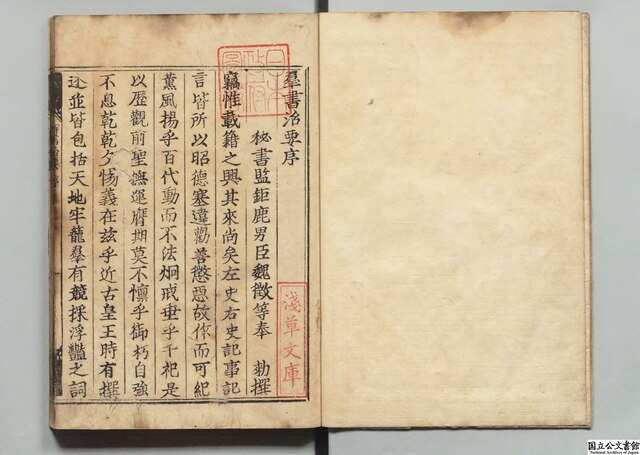 羣書治要序
秘書監鉅鹿男臣魏徵等奉 勑撰
竊惟載籍之興其來尚矣左史右史記事記
言皆所以昭德塞違勸善懲惡故作而可紀
薫風揚乎百代動而不法炯戒垂乎千祀是
以歷觀前聖撫運膺期莫不懍乎御朽自強
不息乾乾夕惕義在兹乎近古皇王時有撰
述並皆包括天地牢籠羣有競採浮豔之詞
日本
政府
圖書
淺草文庫
国立公文書館
National Archives of Japan